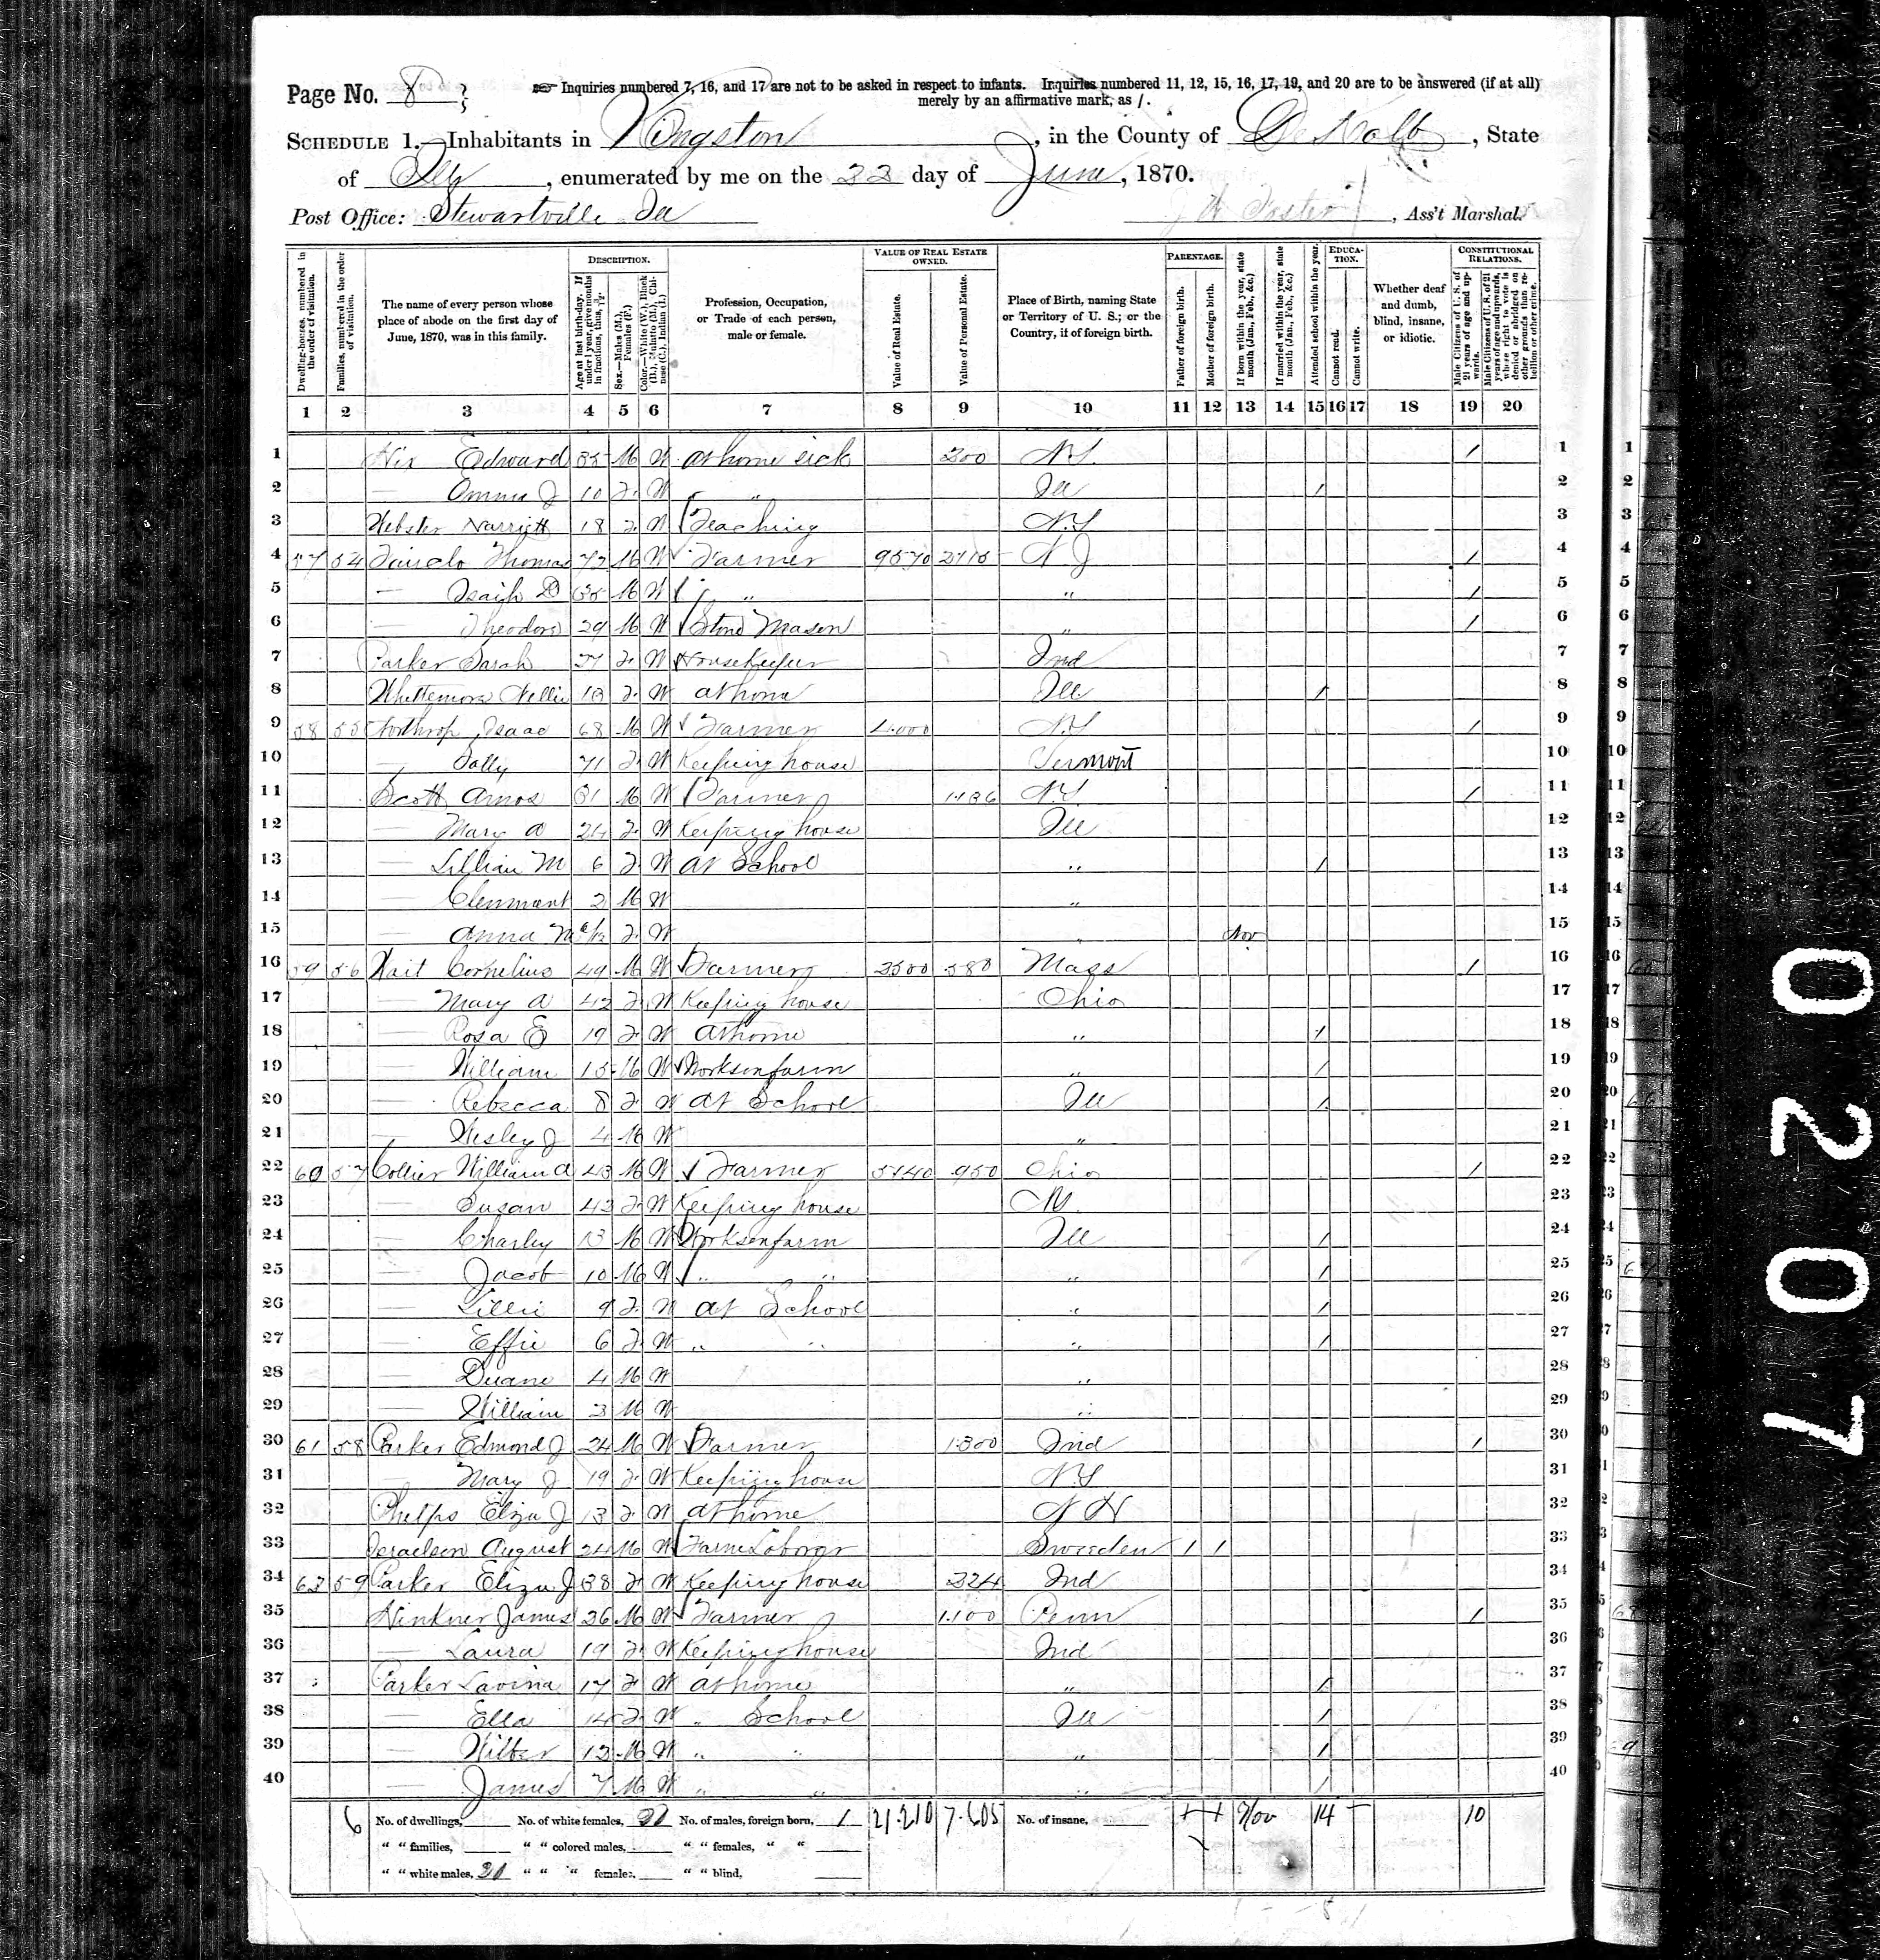 Page No. 8
☞ Inquiries numbered 7, 16, and 17 are not to be asked in respect to infants. Inquiries numbered 11, 12, 15, 16, 17, 19, and 20 are to be answered (if at all)
merely by an affirmative mark, as /.
SCHEDULE 1.—Inhabitants in Kingston, in the County of De Kalb, State
of Ills, enumerated by me on the 22 day of June, 1870.
Post Office: Stewartville Ill J W Foster, Ass't Marshal.
Dwelling-houses, numbered in the order of visitation.
Families, numbered in the order of visitation.
The name of every person whose place of abode on the first day of June, 1870, was in this family.
DESCRIPTION.
Age at last birth-day. If under 1 year, give months in fractions, thus,
Sex.—Males (M.), Females (F.)
Color.—White (W.), Black (B.), Mulatto (M.), Chinese (C.), Indian (I.)
Profession, Occupation, or Trade of each person, male or female.
VALUE OF REAL ESTATE OWNED.
Value of Real Estate.
Value of Personal Estate.
Place of Birth, naming State or Territory of U. S.; or the Country, if of foreign birth.
PARENTAGE.
Father of foreign birth.
Mother of foreign birth.
If born within the year, state month (Jan., Feb., &c.)
If married within the year, state month (Jan., Feb., &c.)
Attended school within the year.
EDUCATION.
Cannot read.
Cannot write.
Whether deaf and dumb, blind, insane, or idiotic.
CONSTITUTIONAL RELATIONS.
Male Citizens of U. S. of 21 years of age and upwards.
Male Citizens of U. S. of 21 years of age and upwards, whose right to vote is denied or abridged on other grounds than rebellion or other crime.
1 2 3 4 5 6 7 8 9 10 11 12 13 14 15 16 17 18 19 20
1 Edward 35 M W at home sick 200 N.Y. / 1
2 — Emma J 10 F W " " Ill / 2
3 Webster Harriett 18 F W Teaching N.Y 3
4 57 54 Thomas 72 M W Farmer 9570 2715 N J / 4
5 — Isaiah D 35 M W " " " / 5
6 — Theodore 29 M W Stone Mason " / 6
7 Parker Sarah 27 F W Housekeeper Ind 7
8 Whittemore Nellie 13 F W at home Ill / 8
9 58 55 Northrop Isaac 68 M W Farmer 4000 N.Y / 9
10 — Sally 71 F W Keeping house Vermont 10
11 Scott Amos 31 M W Farmer 1136 N.Y. / 11
12 — Mary A 24 F W Keeping house Ill 12
13 — Lillian M 6 F W at School " / 13
14 — Clenmont 2 M W " 14
15 — Anna M 6/12 F W " Nov 15
16 59 56 Wait Cornelius 49 M W Farmer 2500 580 Mass / 16
17 — Mary A 42 F W Keeping house Ohio 17
18 — Rosa E 19 F W at home " / 18
19 — William 15 M W Works on farm " / 19
20 — Rebecca 8 F W at School Ill / 20
21 — Wesley J 4 M W " 21
22 60 57 Collier William A 43 M W Farmer 5140 950 Ohio / 22
23 — Susan 43 F W Keeping house 23
24 — Charley 13 M W Works on farm Ill / 24
25 — Jacob 10 M W " " " / 25
26 — Lillie 9 F W at School " / 26
27 — Effie 6 F W " " " / 27
28 — Duane 4 M W " 28
29 — William 3 M W " 29
30 61 58 Parker Edmond J 24 M W Farmer 1300 Ind / 30
31 — Mary J 19 F W Keeping house N.Y 31
32 Phelps Eliza J 13 F W at home N H 32
33 August 24 M W Farm Laborer Sweeden / / 33
34 62 59 Parker Eliza J 38 F W Keeping house 324 Ind 34
35 Winkner James 26 M W Farmer 1100 Penn / 35
36 — Laura 19 F W Keeping house Ind 36
37 Parker Lavina 17 F W at home " / 37
38 — Ella 14 F W " School Ill / 38
39 — Wilber 12 M W " " " / 39
40 — James 7 M W " " " / 40
6 No. of dwellings, No. of white females, No. of males, foreign born, 1 21.210 7.605 No. of insane, Nov 14 10
" " families, " " colored males, " " females, " "
" " white males, 20 " " " females, " " blind,
0207